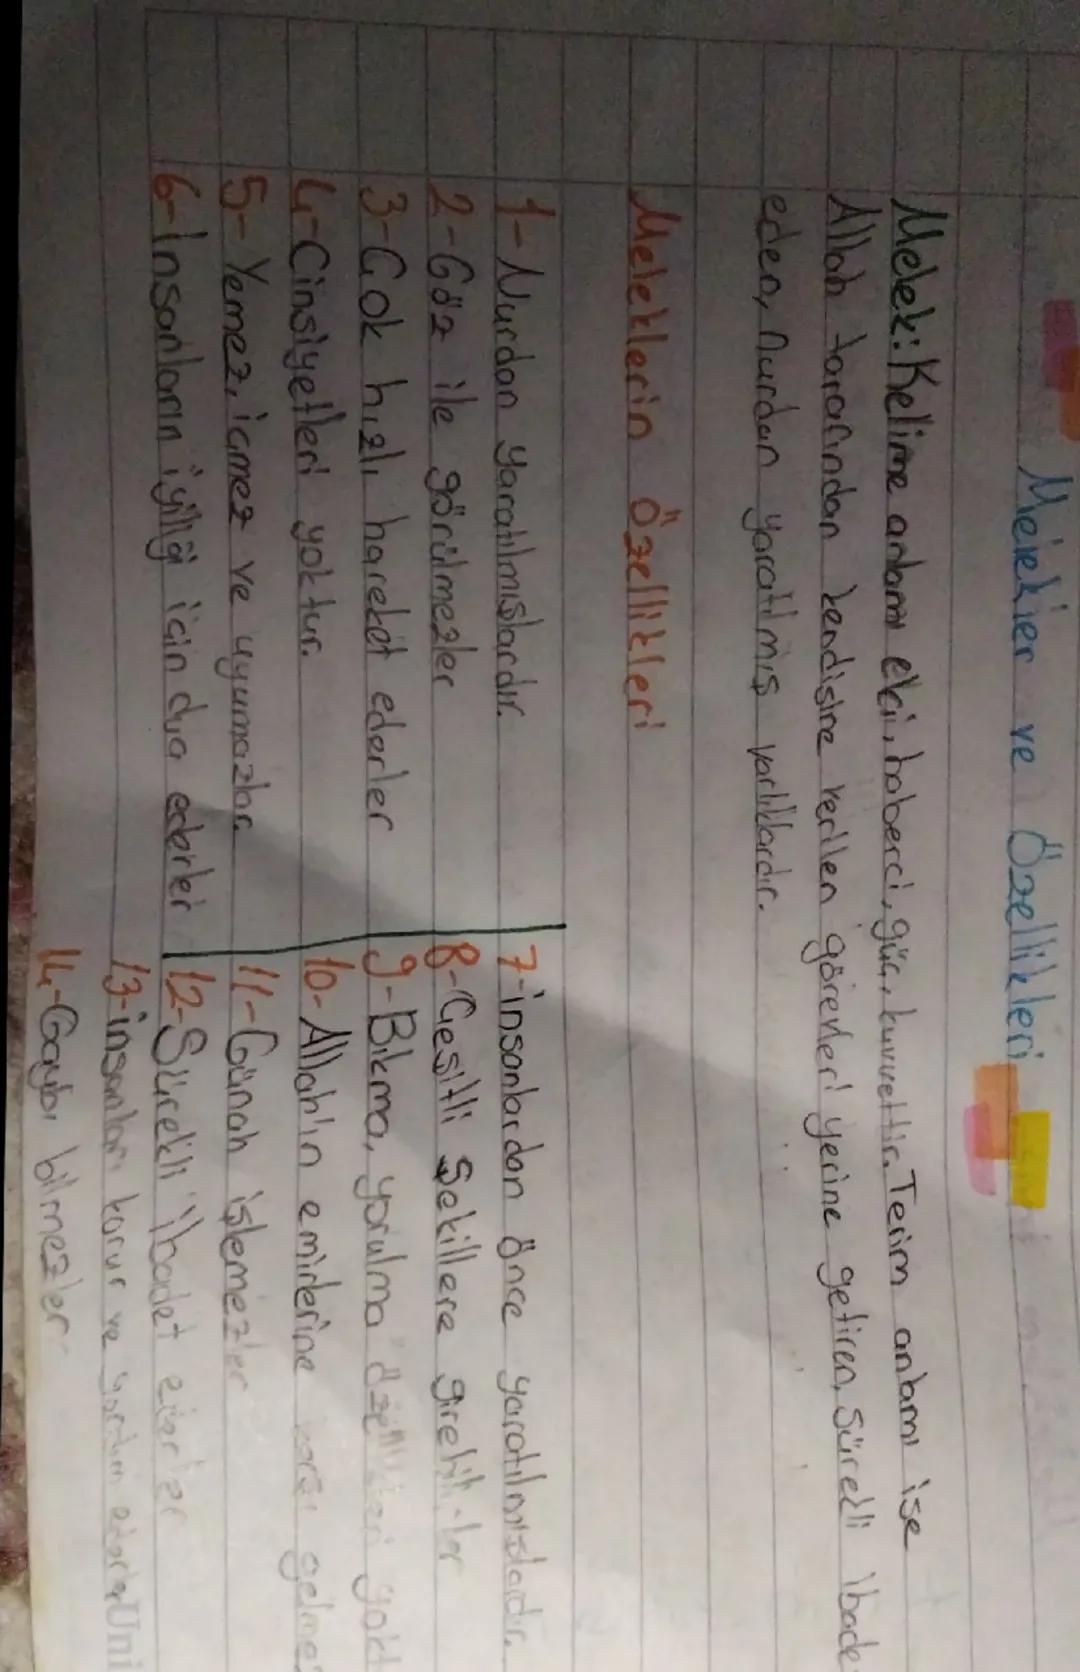 Melekler ve Özellikleri
Melek: Kelime anlamı elçi, haberci, güç, kuvvettir. Terim anlamı ise
Allah tarafından kendisine verilen görevleri yerine getiren, sürekli ibadet
eden, nurdan yaratılmış varlıklardır.
Meleklerin Özellikleri
1-Nurdan yaratılmışlardır.
2-Göz ile görülmezler
3-Çok hızlı hareket ederler
4-Cinsiyetleri yoktur.
5-Yemez, içmez ve uyumazlar.
6-İnsanların iyiliği için dua ederler
7-insanlardan önce yaratılmışlardır.
8-Çeşitli Şekillere girebilirler
9-Bıkma, yorulma özellikleri yokt
10-Allah'ın emirlerine karşı gelmez
11-Günah işlemezler
12-Sürekli ibadet ederler
13-insanları korur ve yardım ederler
14-Gaybı bilmezler